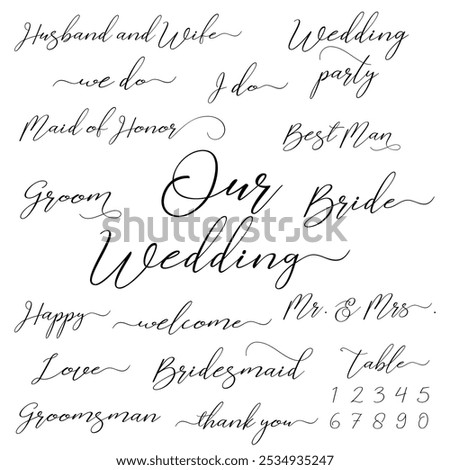 Husband and Wife
Wedding
party
we do
I do
Maid of Honor
Best Man
Groom
Our
Wedding
Bride
Happy
welcome
Mr. & Mrs.
Love
Bridesmaid
Table
1 2 3 4 5
6 7 8 9 0
Groomsman
thank you
shutterstock
IMAGE ID: 2534935247
www.shutterstock.com